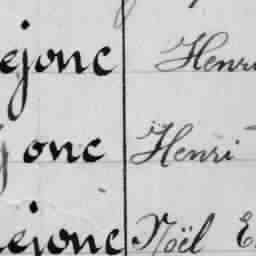 ejonc Henri
jonc Henri
ejonc Noël E